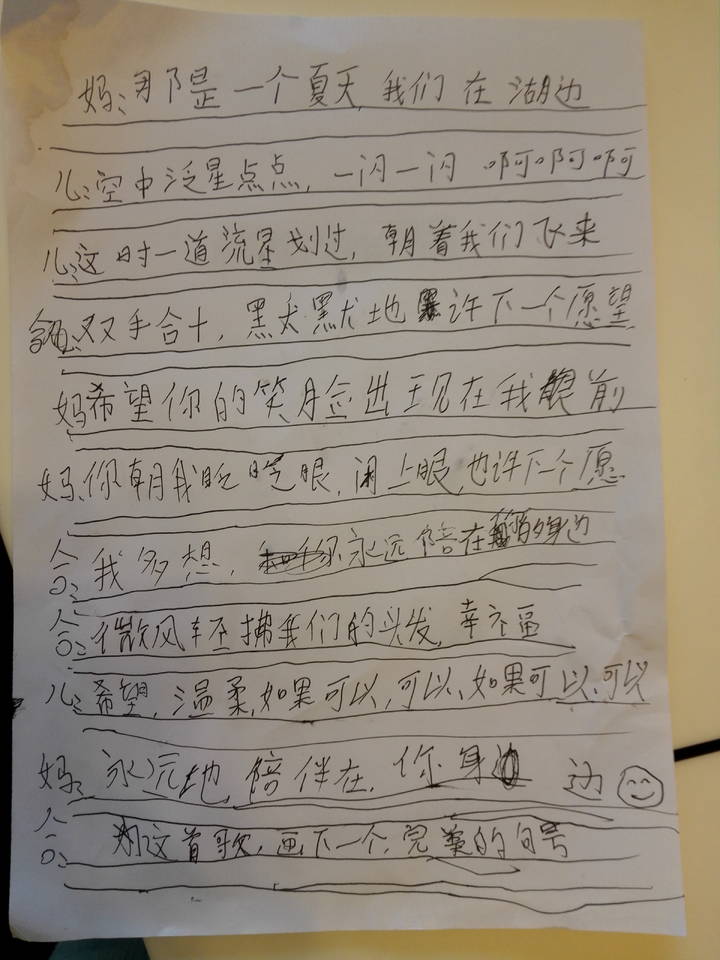 妈:那是一个夏天,我们在湖边
儿:空中泛星点点,一闪一闪 啊啊啊
儿:这时一道流星划过,朝着我们飞来
合:双手合十,默默地许下一个愿望
妈希望你的笑脸出现在我眼前
妈:你朝我眨眨眼,闭上眼,也许下一个愿
合:我多想,你永远陪在你的身边
合:微风轻拂我们的头发,幸福
儿:希望,温柔,如果可以,可以,如果可以,可以
妈:永远地,陪伴在,你身边
合:为这首歌,画下一个,完美的句号